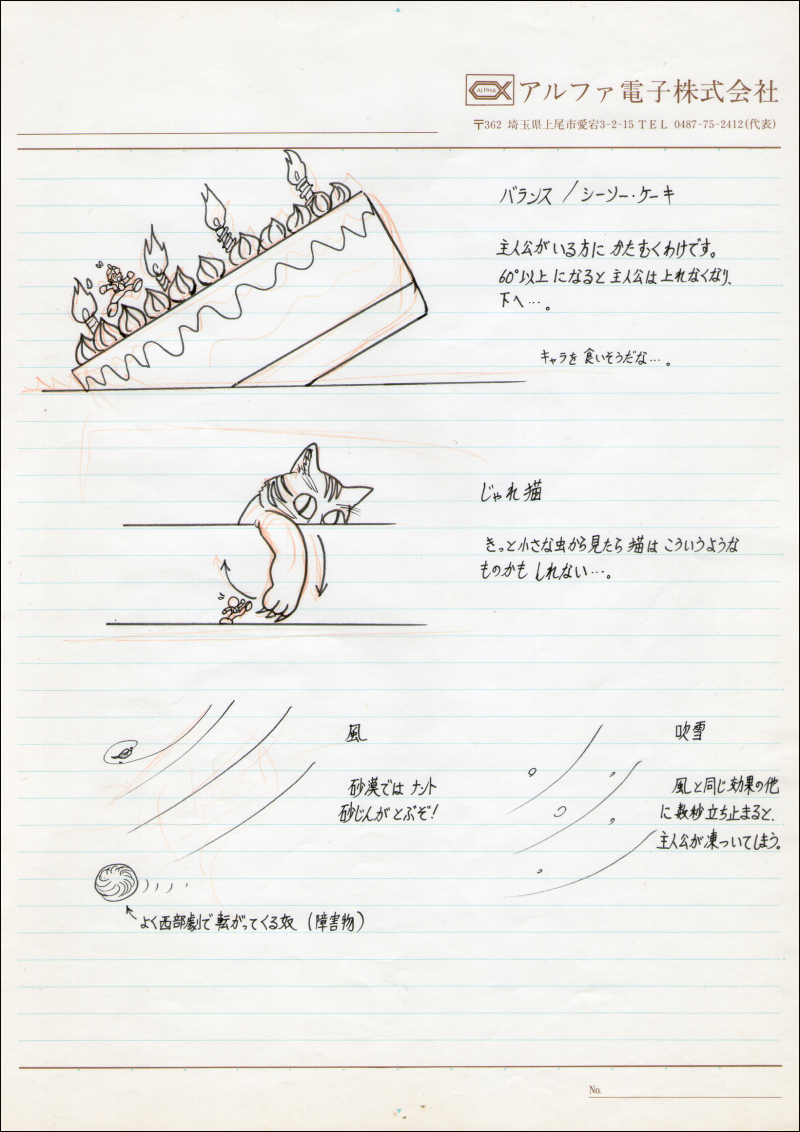 ALPHA
アルファ電子株式会社
〒362 埼玉県上尾市愛宕3-2-15 TEL 0487-75-2412(代表)
バランス / シーソー・ケーキ
主人公がいる方に かたむくわけです。
60°以上になると 主人公は上れなくなり、
下へ…。
キャラを 食いそうだな…。
じゃれ猫
きっと小さな虫から見たら 猫は こういうような
ものかも しれない…。
風
砂漠では ナント
砂じんが とぶぞ!
よく西部劇で 転がってくる奴 (障害物)
吹雪
風と同じ効果の他
に数秒立ち止まると、
主人公が凍ついてしまう。
No.